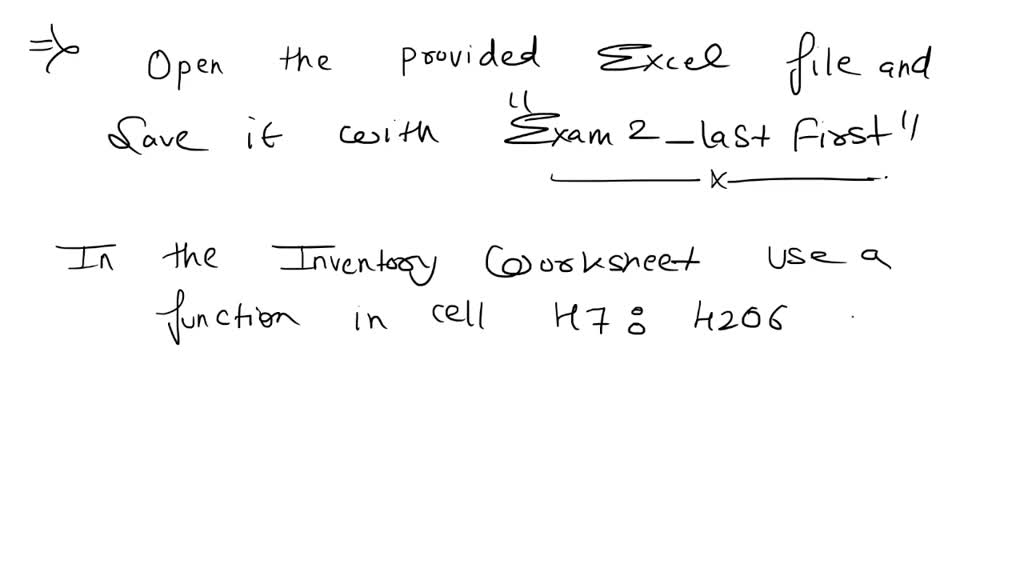 ⇒ Open the provided Excel file and
Save it with "Exam 2_last First"
In the Inventory Worksheet use a
function in cell H7 : H206